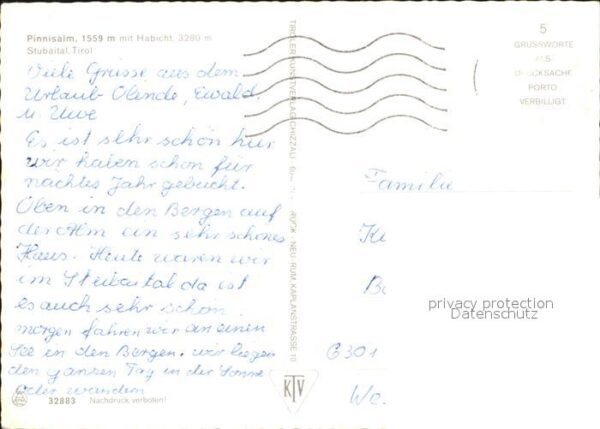 Pinnisalm, 1559 m mit Habicht, 3280 m
Stubaital, Tirol
Viele Grüsse aus dem
Urlaub Ewald
u. Uwe
Es ist sehr schön hier
wir haben schon für
nächtes Jahr gebucht.
Oben in den Bergen auf
der Alm ein sehr schönes
Haus. Heute waren wir
im Stubaital da ist
es auch sehr schön.
morgen fahren wir an einen
See in den Bergen. wir liegen
den ganzen Tag in der Sonne
oder wandern
32883 Nachdruck verboten!
TIROLER KUNSTVERLAG CHIZZALI
INNSBRUCK NEU-RUM KAPLANSTRASSE 10
KTV
5
GRUSSWORTE
ALS
DRUCKSACHE
PORTO
VERBILLIGT
Familie
privacy protection
Datenschutz
6301